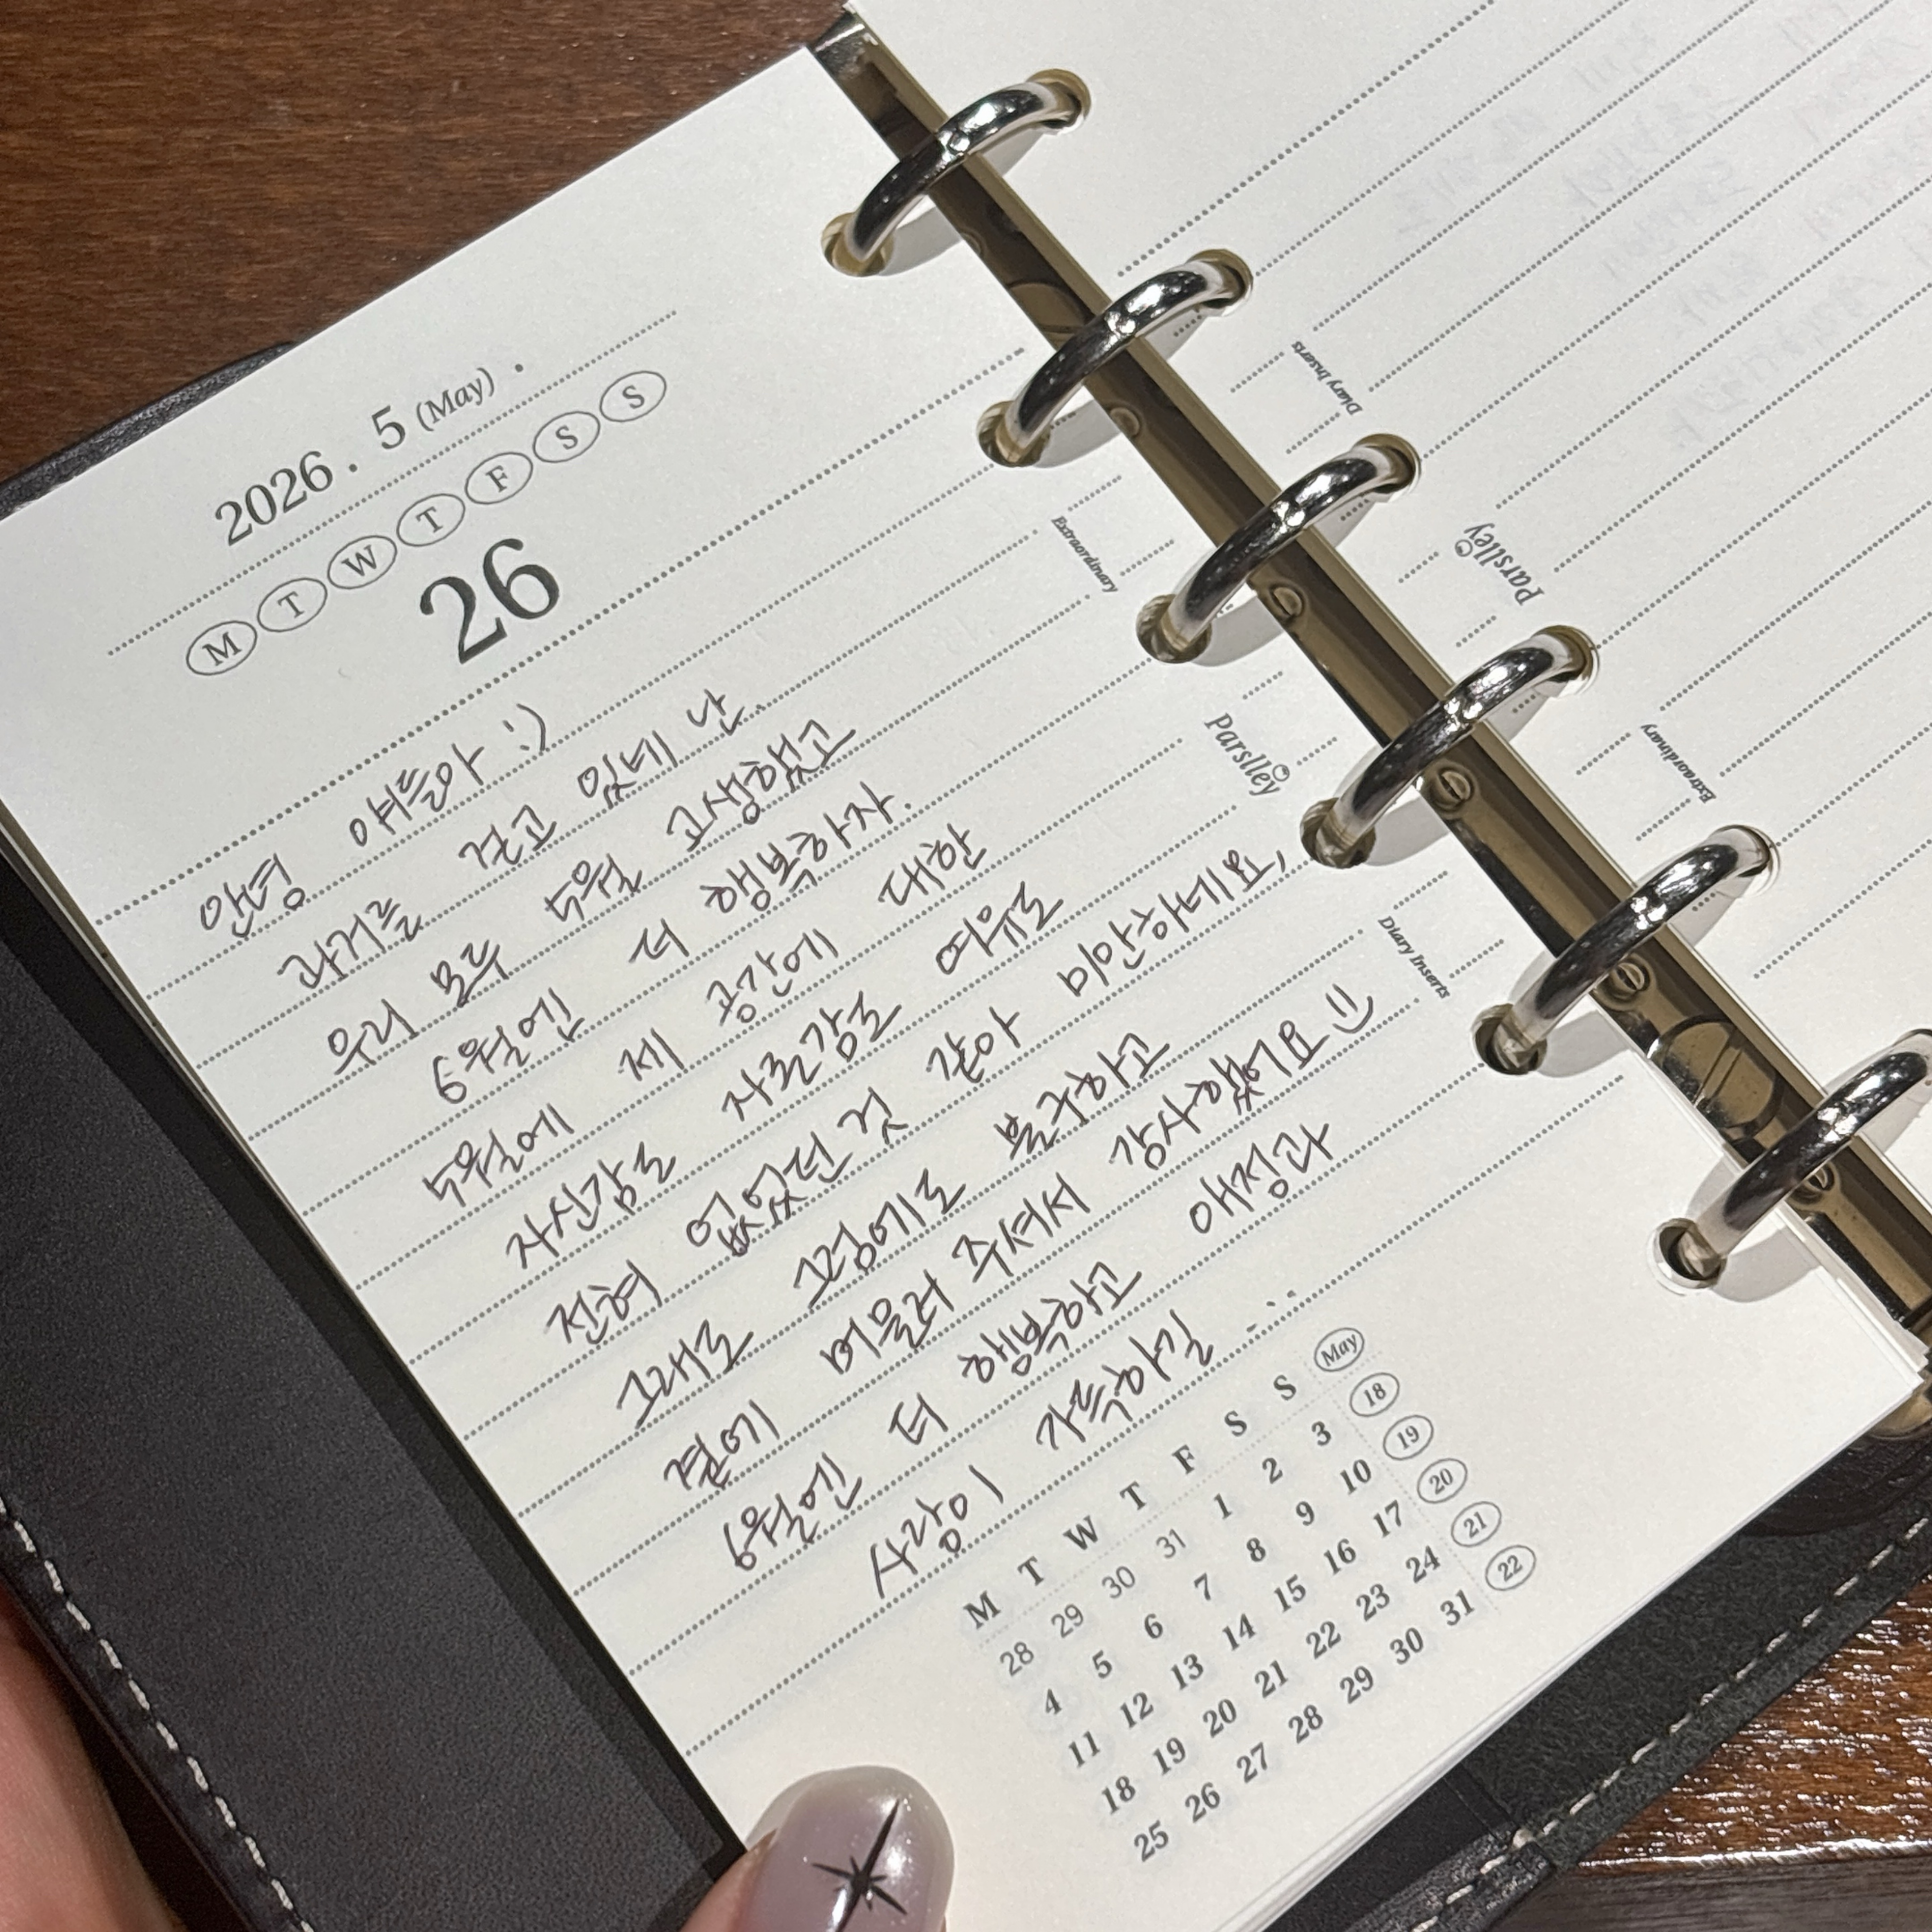 2026 . 5 (May) .
M T W T F S S
26
안녕 애들아 :)
과거를 걷고 있네 난.
우리 모두 5월 고생했고
6월엔 더 행복하자.
5월에 제 공간에 대한
자신감도 자존감도 여유도
전혀 없었던 것 같아 미안하네요,
그래도 그럼에도 불구하고
곁에 머물러 주셔서 감사했어요 :)
6월엔 더 행복하고 애정과
사랑이 가득하길 . . .
May
M T W T F S S
28 29 30 31 1 2 3 18
4 5 6 7 8 9 10 19
11 12 13 14 15 16 17 20
18 19 20 21 22 23 24 21
25 26 27 28 29 30 31 22
Extraordinary
Parslley
Diary Inserts
Diary Inserts
Parslley
Extraordinary